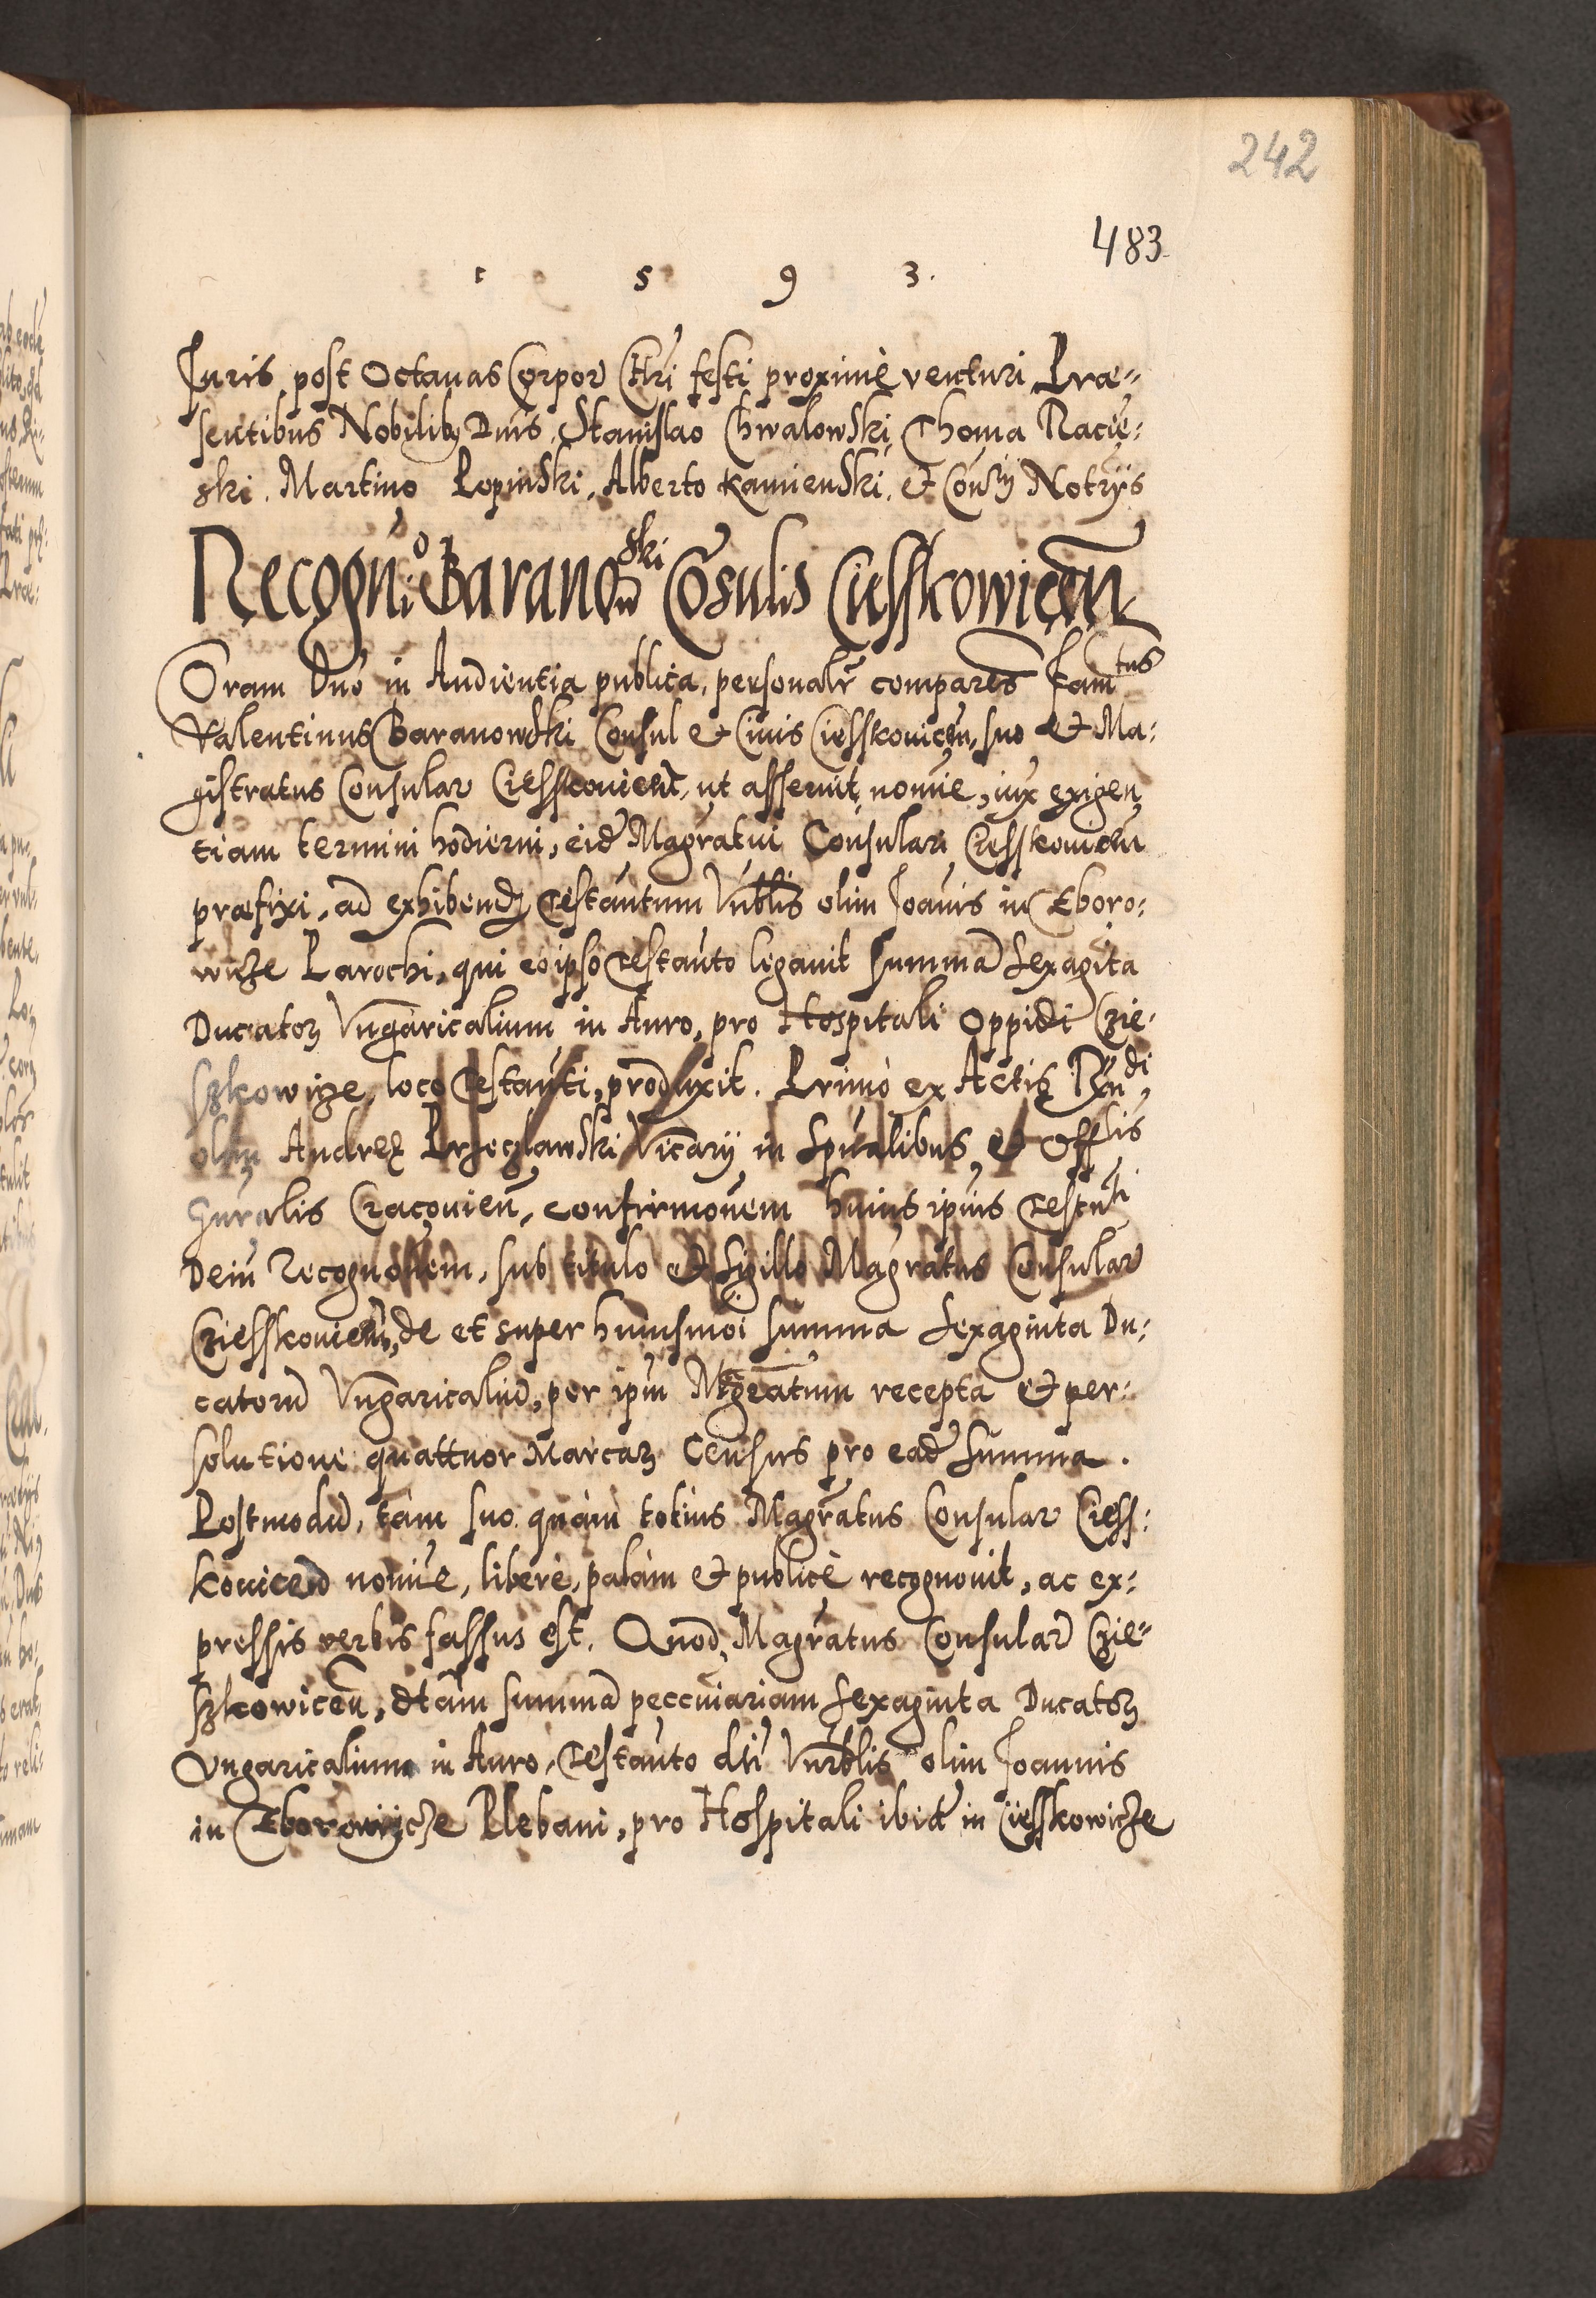 242
483
1 5 9 3.
Juris post Octauas Corpor Chri festi proximè venturi Præ=
sentibus Nobilibq Dnis. Stanislao Chwalowski, Thoma Racię:
ski. Martino Lopinski, Alberto Kamienski. et Consrÿ Notrÿs
Recogni:o Baranowski Cōsulis Ciesskowiceñ
Coram Dno in Audientia publica, personalr comparens Famtus
Valentinus Baranowski Consul et Ciuis Ciesskouiceñ, suo et Ma:
gistratus Consular Ciesskouicen, ut asseruit nomīe, iux exigen
tiam termini hodierni, eid Magratui Consulari Ciesskouiceñ
præfixi, ad exhibendz Testantum Vnblis olim Joannis in Zboro:
wicze Parochi, qui eo ipso Testanto legauit summā Sexagīta
Ducatoz Vngaricalium in Auro, pro Hospitali Oppidi Czie:
szkowicze, loco Testanti, produxit. Primò ex Actis Rñdi
olim Andreę Przeczlawski Vicarÿ in Spualibus et Offlis
Gñralis Cracouieñ, confirmōnem huius ipius Testnti
Deiñ Recognōnem, sub titulo et Sigillo Magratus Consular
Cziesskouiceñ, de et super huiusmōi summa Sexaginta Du:
catorū Vngaricaliū, per ipm Mgratum recepta et per:
solutione quattuor Marcaz Census pro ead Summa.
Postmodū, tàm suo quàm totius Magratus Consular Ciess:
kouiceñ nomīe, liberè, palàm et publicè recognouit, ac ex:
pressis verbis fassus est. Quod Magratus Consular Czie=
szkowiceñ, dtam summā peccuiariam Sexaginta Ducatoz
Vngaricalium in Auro, Testanto dti Vnrblis olim Joannis
in Zborowicze Plebani, pro Hospitali ibid in Ciesskowicze